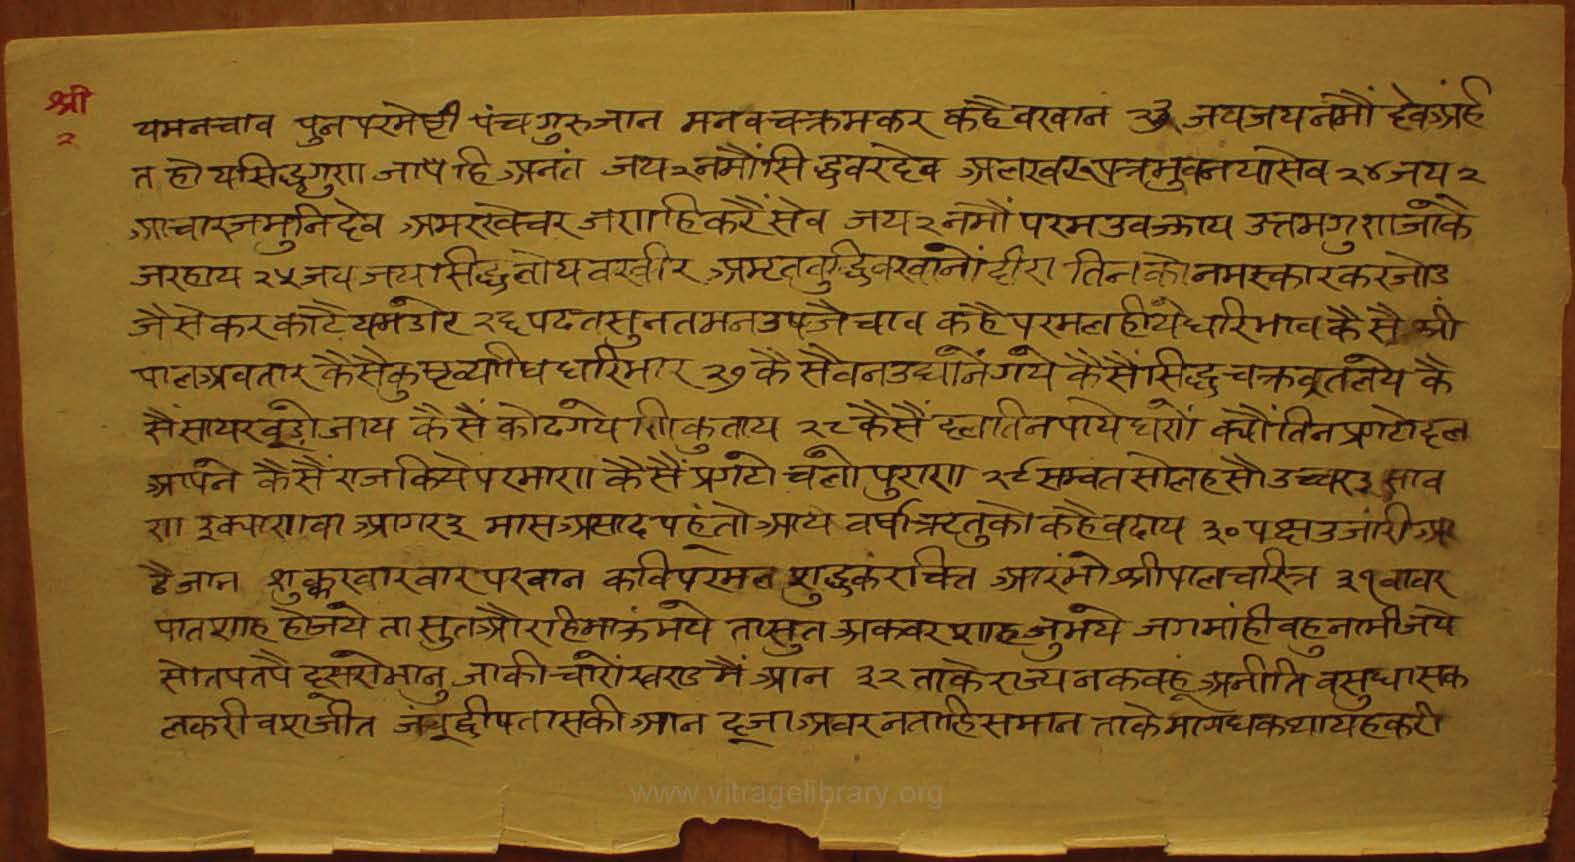 श्री
२
यमनचाव पुनपरमेष्टी पंचगुरुजान मनवचक्रमकर कहैवखान २३ जयजयनमौं देवअर्हं
त होयसिद्धगुण जापहि अनंत जय२नमौंसिद्धवरदेव अलखरूपत्रभुवनयासेव २४ जय२
आचारजमुनिदेव अमरखेचर जाहिकरैंसेव जय२नमौं परमउवझाय उत्तमगुणजांके
जरहाय २५ जय जय वरवीर तिनकोनमस्कारकरजोउ
जैसेकर काटैयमडोर २६ पढतसुनतमनउपजैचाव कहैपरमलहीयेधरिभाव कैसै श्री
पालअवतार कैसैकुष्टव्याधिधरिमार २७ कैसैवनउद्यानेंगये कैसैंसिद्धचक्रवृतलये कै
सैंसायरवूडोजाय कैसैं २८ कैसैं दलतिनपायेघणे क्यौंतिनप्रगटेदल
आपने कैसैंराजकियेपरमाण कैसैंप्रगटो चलोपुराण २९ सम्वतसोलहसौउच्चरउ साव
ण इक्याणवा आगरउ मासअसाढपहंतोआय वर्षाऋतुकोकहैवढाय ३० पक्षउजारीआ
ठैजान शुक्करवारवारपरवान कविपरमल शुद्धकरचित आरंभोश्रीपालचरित्र ३१ वावर
पातशाहहोजये तासुतऔरहिमाऊंभये तासुतअकवरशाहजुभये जगमांहीवहुनामीजये
सोतपतपै दूसरोभानु जाकीचारोंखण्डमैंआन ३२ ताकेराज्यनकवहूंअनीति वसुधासक
लकरीवशजीत जंवूद्वीपतासकीआन दूजाअवरनताहिसमान ताके कथायहकरी
www.vitragelibrary.org